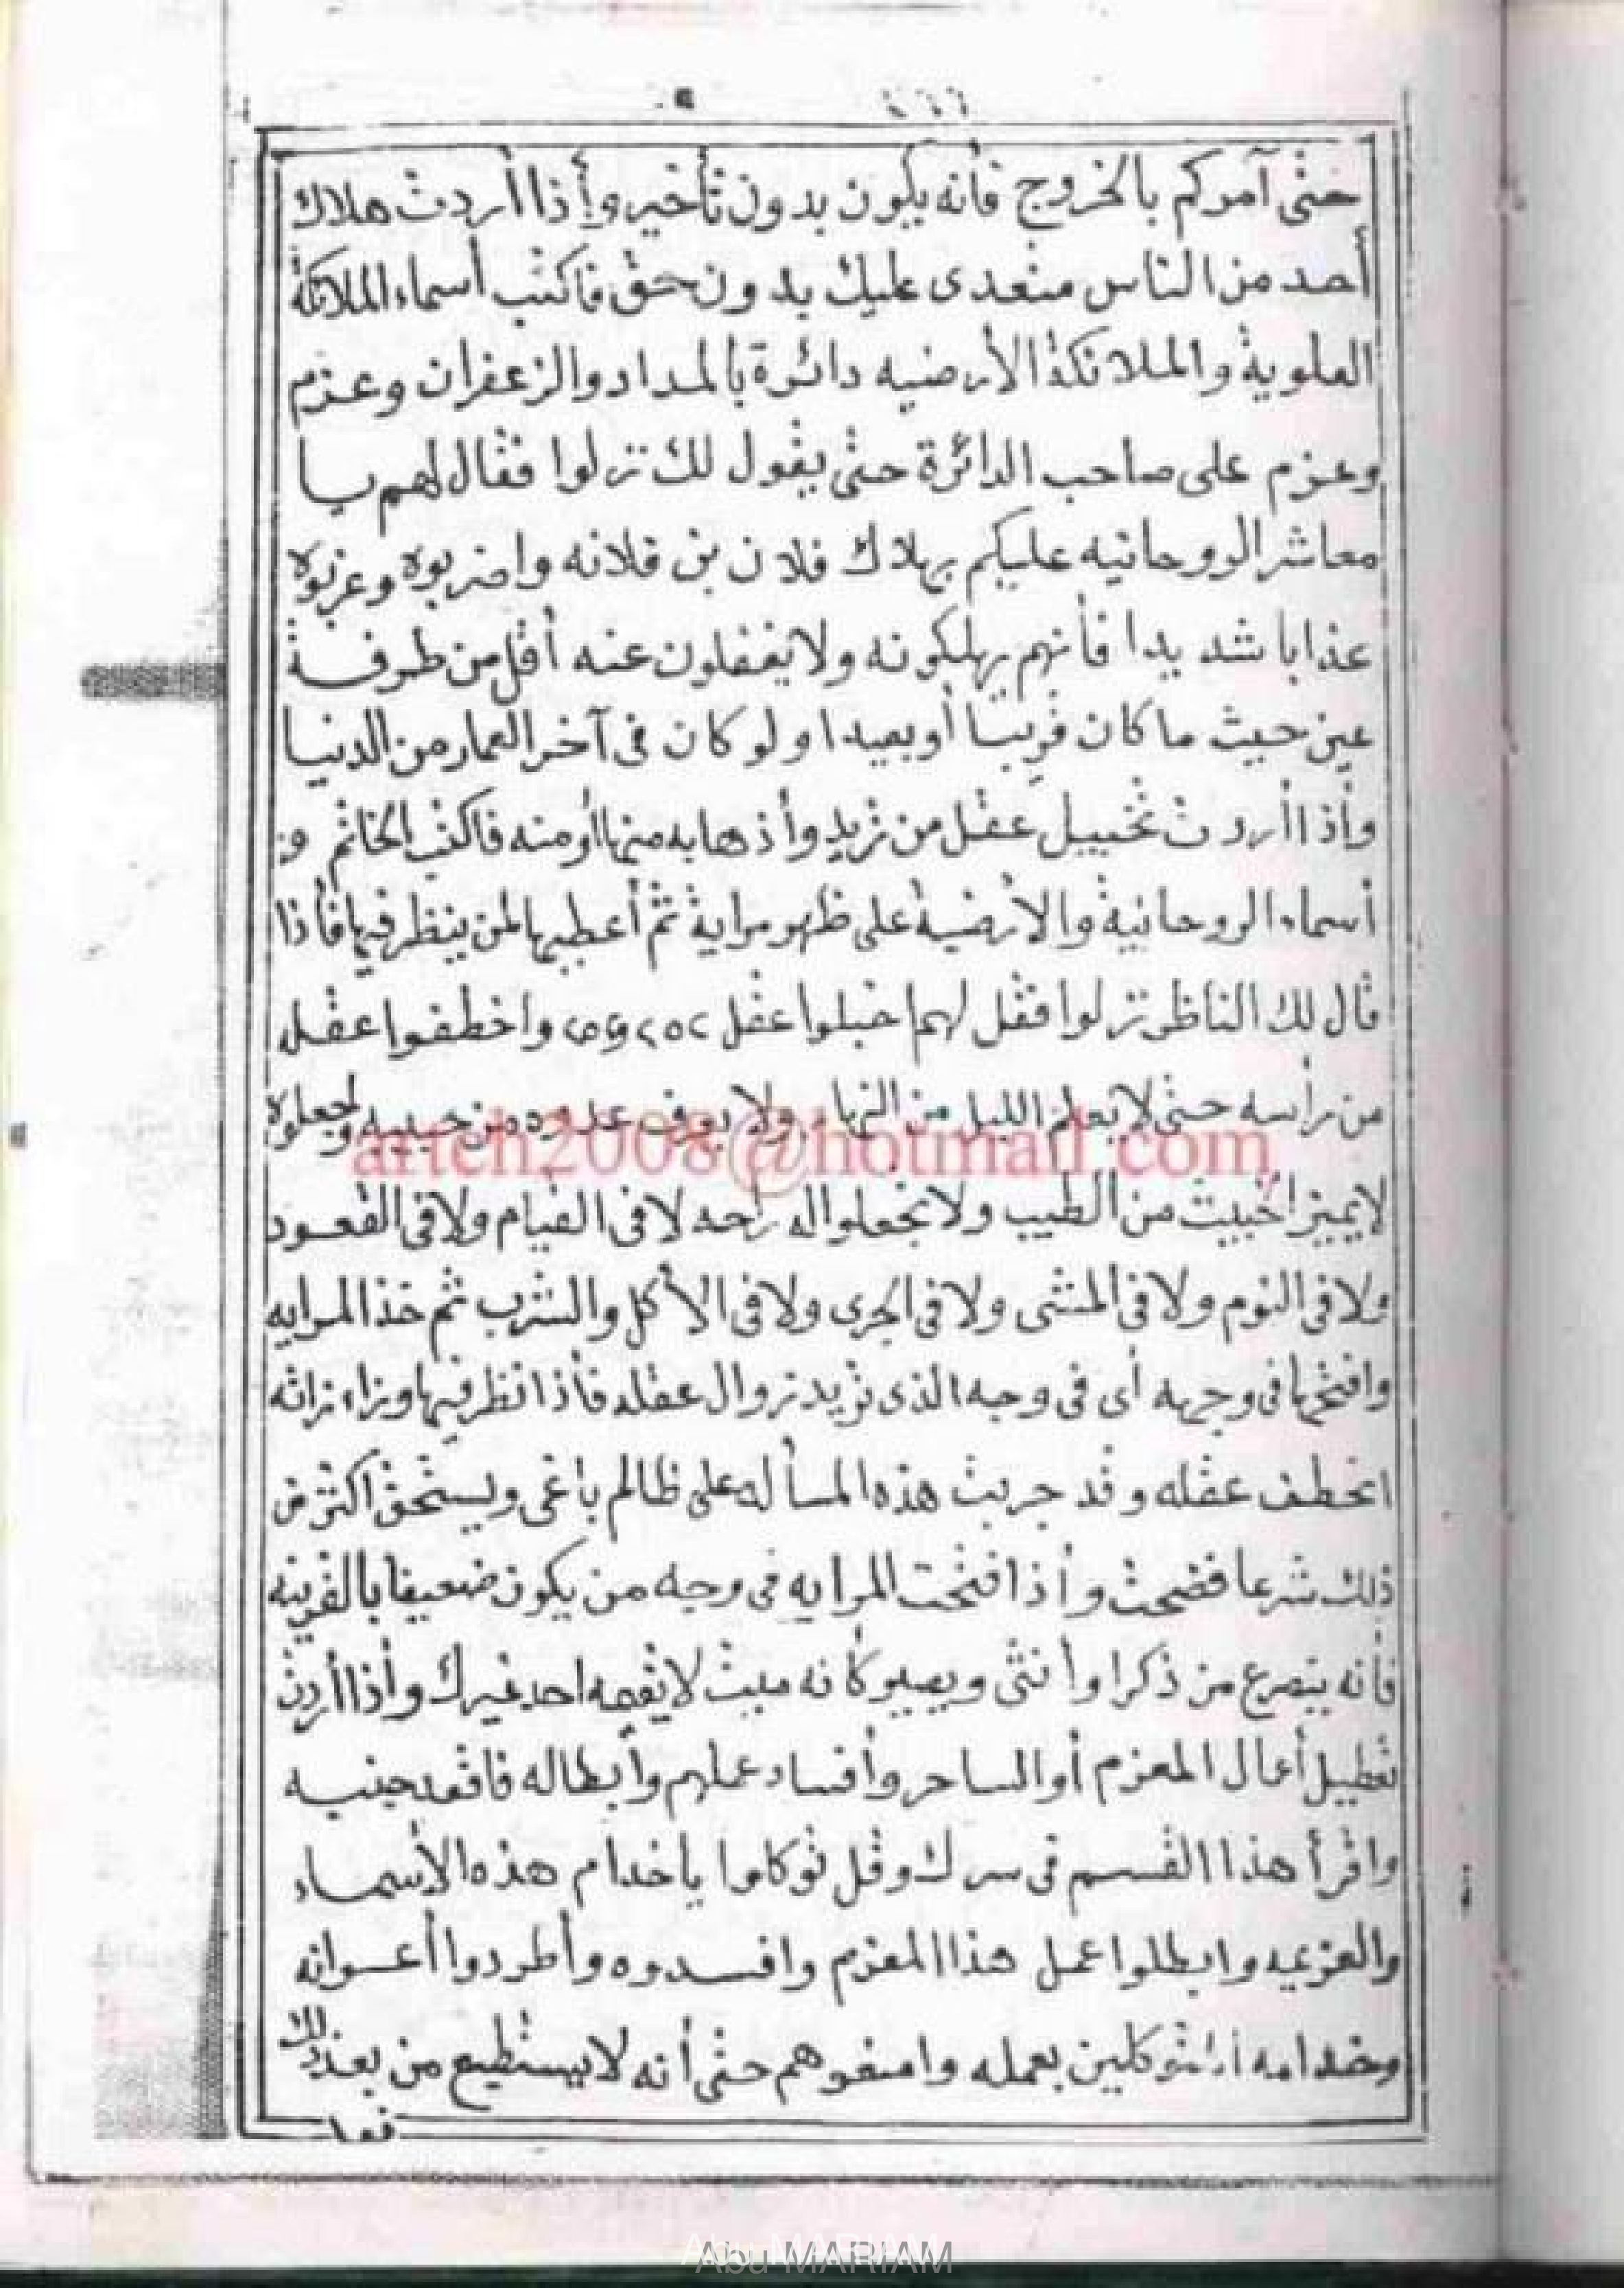 حتى آمركم بالخروج فأنه يكون بدون تأخير وأذا أردت هلاك
أحد من الناس متعدى عليك بدون حق فاكتب أسماء الملائكة
العلوية والملائكة الأرضيه دائرة بالمداد والزعفران وعزم
وعزم على صاحب الدائرة حتى يقول لك نزلوا فقال لهم يا
معاشر الروحانيه عليكم بهلاك فلان بن فلانه واضربوه وعزبوه
عذابا شديدا فأنهم يهلكونه ولا يغفلون عنه أقل من طرفة
عين حيث ما كان قريبا أو بعيدا ولو كان فى آخر العمار من الدنيا
وأذا أردت تخبيل عقل من تريد وأذهابه منها أو منه فاكتب الخاتم و
أسماء الروحانية والأرضية على ظهر مراية ثم أعطيها لمن ينظر فيها فأذا
قال لك الناظر نزلوا فقل لهم اخبلوا عقل واخطفوا عقله
من رأسه حتى لا يعلم الليل من النهار ولا يعرف عدوه من حبيبه واجعلوه
لا يميز الخبيث من الطيب ولا تجعلوا له راحه لا فى القيام ولا فى القعود
ولا فى النوم ولا فى المشى ولا فى الجرى ولا فى الأكل والشرب ثم خذ المرايه
وافتحها فى وجهه أى فى وجه الذى تريد زوال عقله فأذا نظر فيها وراء ذاته
انخطف عقله وقد جربت هذه المسأله على ظالم باغى ويستحق اكثر من
ذلك شرعا فضحت وأذا فتحت المرايه فى وجه من يكون ضعيفا بالقرينه
فأنه يتصرع من ذكرا وأنثى ويصير كأنه ميت لا يقمه احد غيرك وأذا أردت
تعطيل أعمال المعزم أو الساحر وأفساد عملهم وأبطاله فاقعد بجنبه
واقرأ هذا القسم فى سرك وقل توكلوا يا خدام هذه الأسماء
والعزيمه وابطلوا عمل هذا المعزم وافسدوه وأطردوا أعوانه
وخدامه المتوكلين بعمله وامنعوهم حتى أنه لا يستطيع من بعد ذلك
فعل
arteh2008@hotmail.com
Abu MARIAM